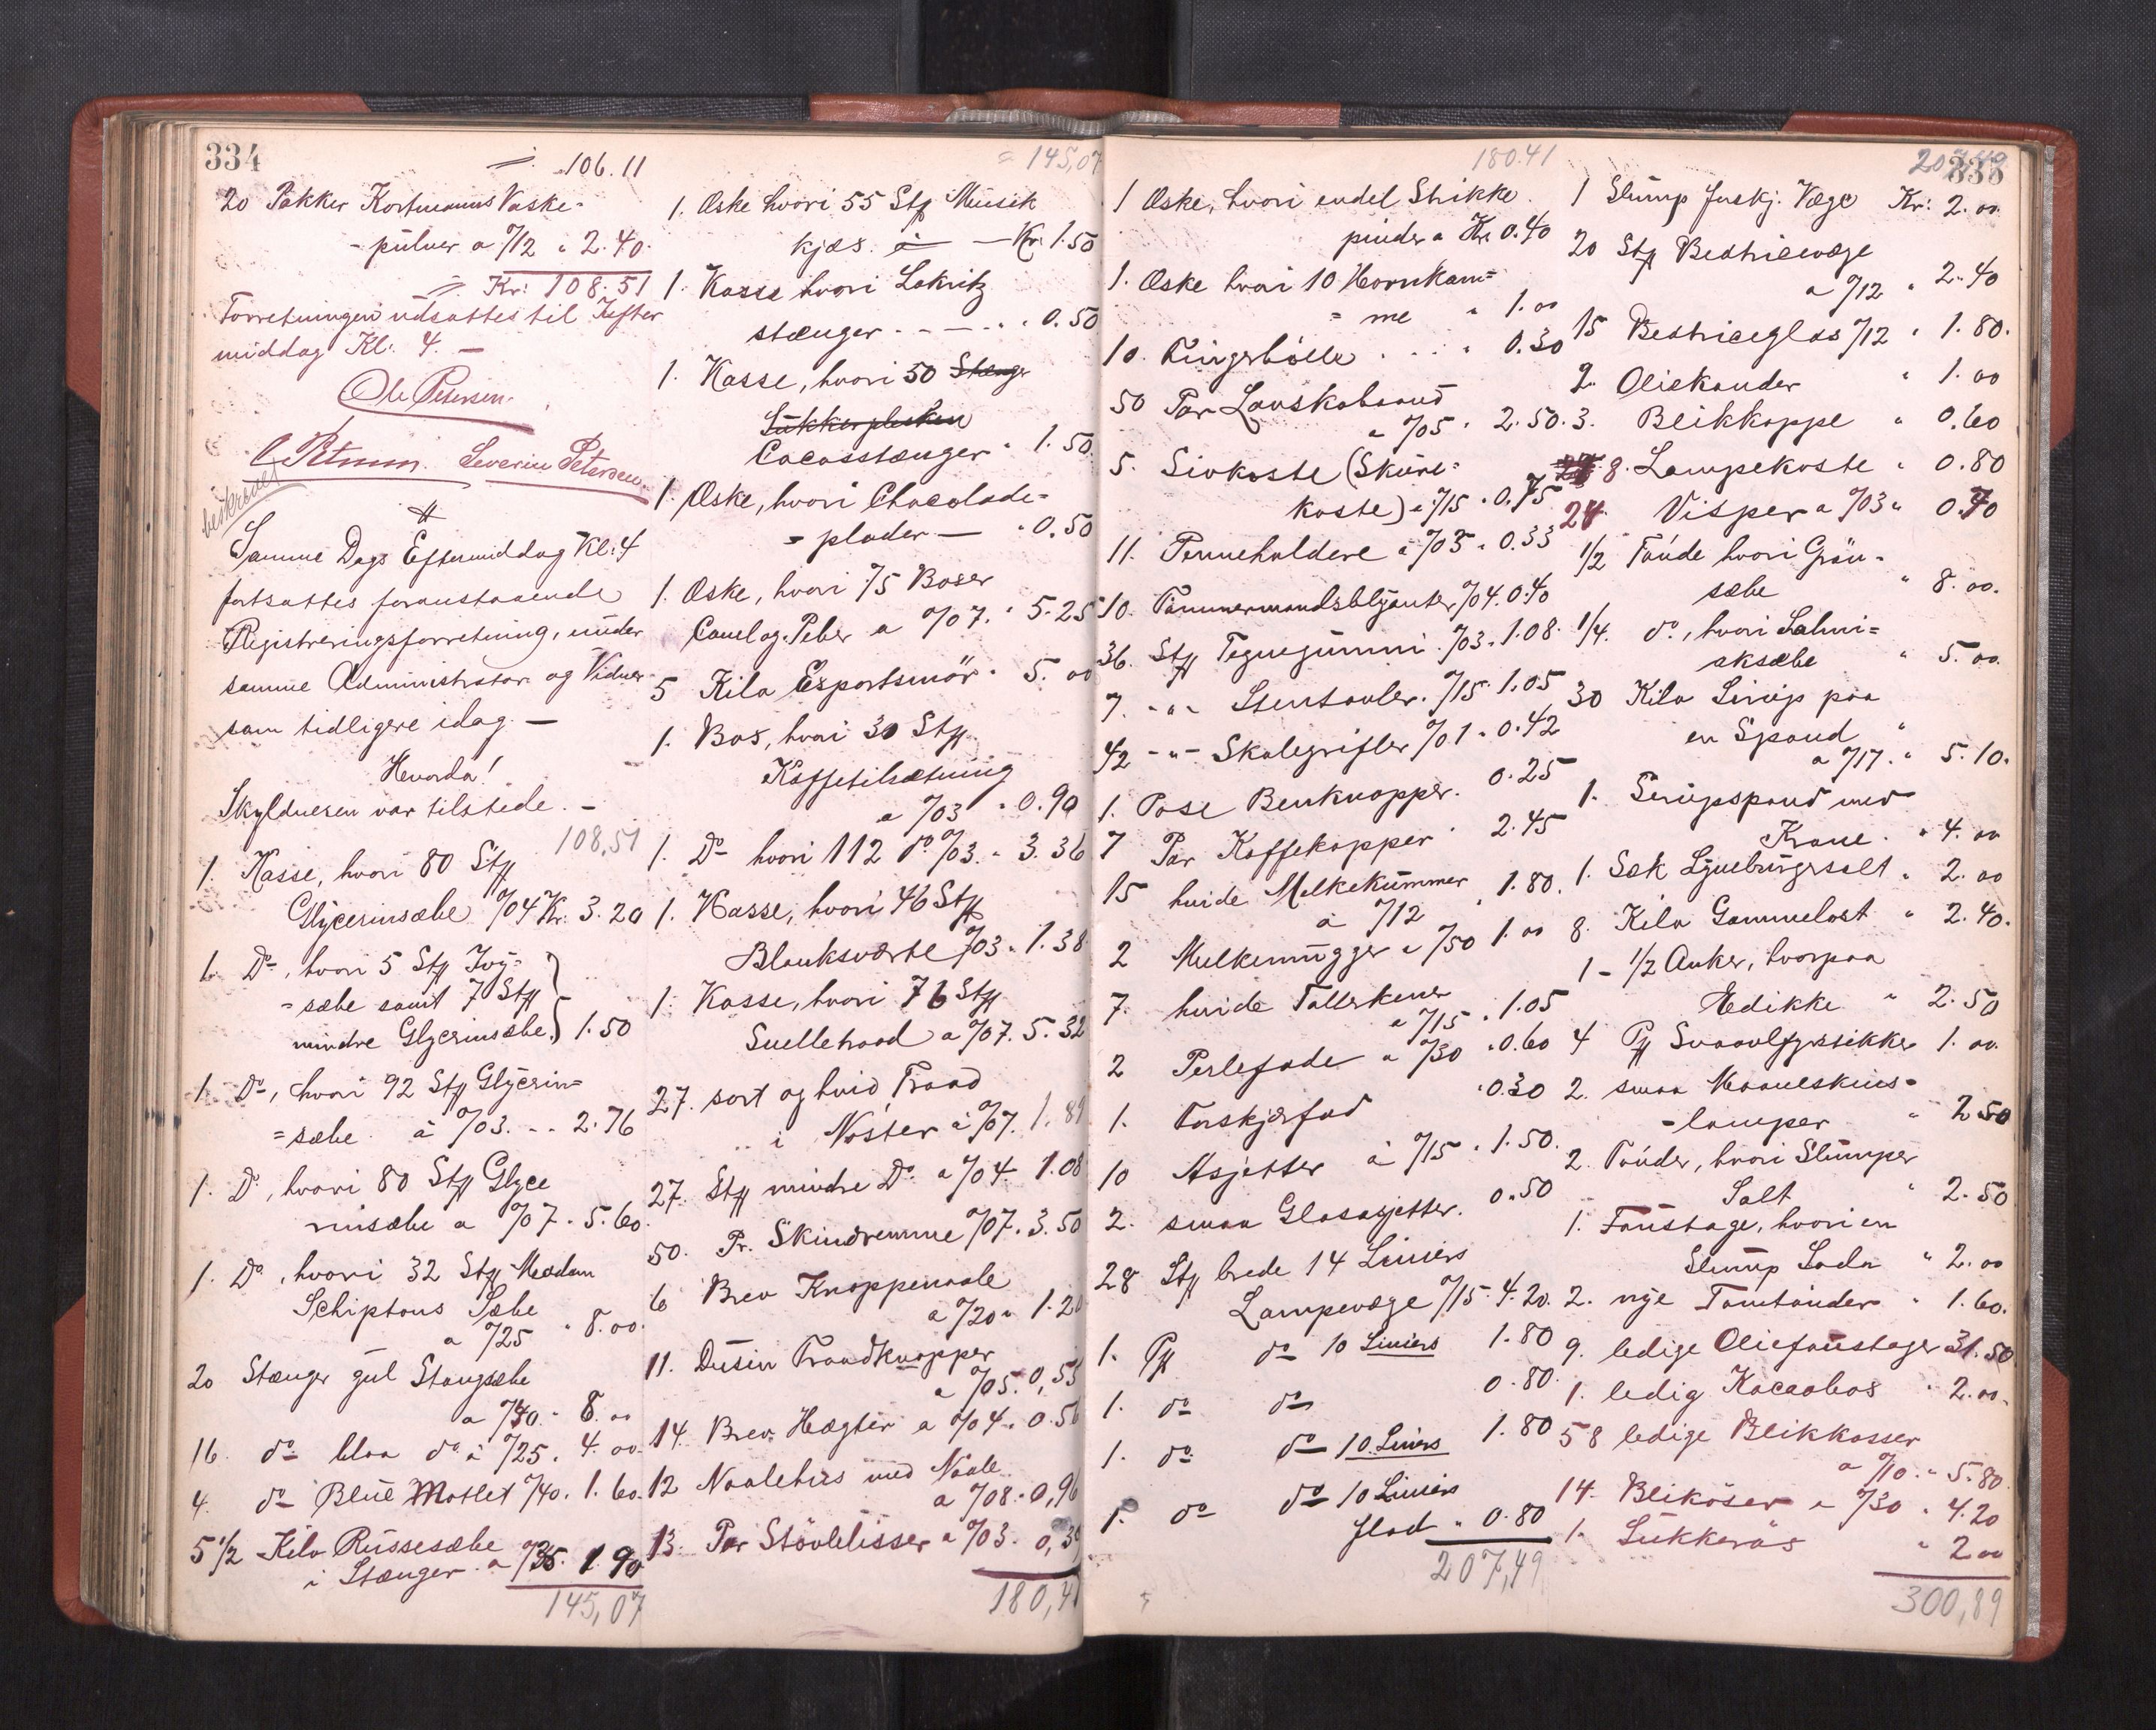 334
" 106.11
20 Pakker Kortmanns Vaske-
- pulver a %12 " 2.40.
" Kr: 108.51
Forretningen udsattes til Efter
middag Kl: 4. —
Ole Petersen.
O Petersen. Severin Petersen.
beskrevet
Samme Dags Eftermiddag Kl: 4
fortsattes foranstaaende
Registreringsforretning, under
samme Administrator og Vidner
som tidligere idag. —
Hvorda!
Skyldneren var tilstede. —
108,51
1. Kasse, hvori 80 Stk
Glycerinsæbe %04 Kr. 3.20
1. Do, hvori 5 Stk Ivy=
=sæbe samt 7 Stk
mindre Glycerinsæbe. 1.50
1. Do, hvori 92 Stk Glycerin=
=sæbe. à %03. .. 2.76
1. Do, hvori 80 Stk Glyce
rinsæbe a %07 " 5.60.
1. Do, hvori 32 Stk Madam
Schiptons Sæbe
a %25 " 8.00.
20 Stænger gul Stangsæbe
a %40. " 8.00
16. do blaa do à %25. 4.00.
4. do Blue Motlet %40. 1.60.
5 1/2 Kilo Russesæbe
i Stænger. a %35. 1.90
145,07
= 145,07
1. Æske hvori 55 Stk Musik
kjæs. à — Kr: 1.50
1. Kasse hvori Lakritz
stænger - - - - . " 0.50
1. Kasse, hvori 50 Stænger
Sukkerplesken
Cacosstænger " 1.50.
1. Æske, hvori Chocolade=
= plader — " 0.50
1. Æske, hvori 75 Boser
Canel og Peber a %07. " 5.25
5 Kilo Exportsmör " 5.00
1. Bos, hvori 30 Stk.
Kaffetilsætning
a %03 " 0.90
1. Do hvori 112 do %03. " 3.36
1. Kasse, hvori 46 Stk
Blanksværte %03. " 1.38
1. Kasse, hvori 76 Stk
Snelletraad a %07. 5.32
27. sort og hvid Traad
i Nöster à %07. 1.89
27. Stk mindre Do a %04. 1.08
50. Pr. Skindremme %07. 3.50
6 Brev Knappenaale
a %20 " 1.20
11. Dusin Traadknapper
a %05. 0,55
14. Brev Hægter a %04. 0.56
12 Naalehus med Naale
a %08. 0,96
13. Par Stövlelisser a %03. 0,39
180,41
335
180.41
1 Æske, hvori endel Strikke
pinder a Kr 0.40
1. Æske hvori 10 Hornkam=
= me " 1.00
10. Fingerbölle . . . . " 0.30
50 Par Lauskabaand
a %05 " 2.50.
5. Sivkoste (Skure=
koste) a %15 " 0.75
11. Penneholdere à %03 " 0.33
10. Tömmermandsblyanter %04. 0.40
36. Stk Tegnegummi. %03. 1.08.
7. - " - Stentavler. %15. 1.05
42 - " - Skolegrifler %01 " 0.42
1. Pose Benknapper. 0.25
7 Par Kaffekopper " 2.45
15 hvide Melkekummer
à %12 " 1.80.
2 Melkemugger a %50 1.00
7. hvide Tallerkener
a %15 " 1.05
2 Perlefade a %30 " 0.60
1. Forskjærfad " 0.30
10 Asjetter à %15 " 1.50.
2. smaa Glasasjetter. 0.50
28 Stk brede 14 Liniers
Lampevæge %15. 4.20.
1. Pk do 10 Liniers 1.80
1. do do 0.80.
1. do do 10 Liniers 1.80
1. do do 10 Liniers
flad " 0.80
207,49
207,49
1 Slump forskj. Væge Kr: 2.00.
20 Stk Beatricevæge
a %12 " 2.40
15 Beatriceglas %12 " 1.80.
2. Oliekander " 1.00
3. Blikkoppe " 0.60
8. Lampekoste " 0.80
24. Visper a %03 " 0.70
1/2 Tönde hvori Grön-
sæbe " 8.00.
1/4. do, hvori Salmi=
aksæbe " 5.00.
30 Kilo Sirup paa
en Spand "
a %17. " 5.10.
1. Serupspand med
Krane. " 4.00
1. Sæk Lyneburgsalt " 2.00
8. Kilo Gammelost " 2.40.
1 - 1/2 Anker, hvorpaa
Edikke " 2.50
4 Pk Svaavlfyrstikker 1.00.
2. smaa Maaneskins=
-lamper " 2.50
2. Tönder, hvori Slumper
Salt " 2.50
1. Faustage, hvori en
Slump Soda " 2.00
2. nye Tomtönder " 1.60.
9. ledige Oliefaustager 31.50
1. ledig Kacaobos " 2.00.
58 ledige Blikkasser
a %10. " 5.80.
14. Bliköser a %30 " 4.20
1. Sukkerös " 2.00
300,89